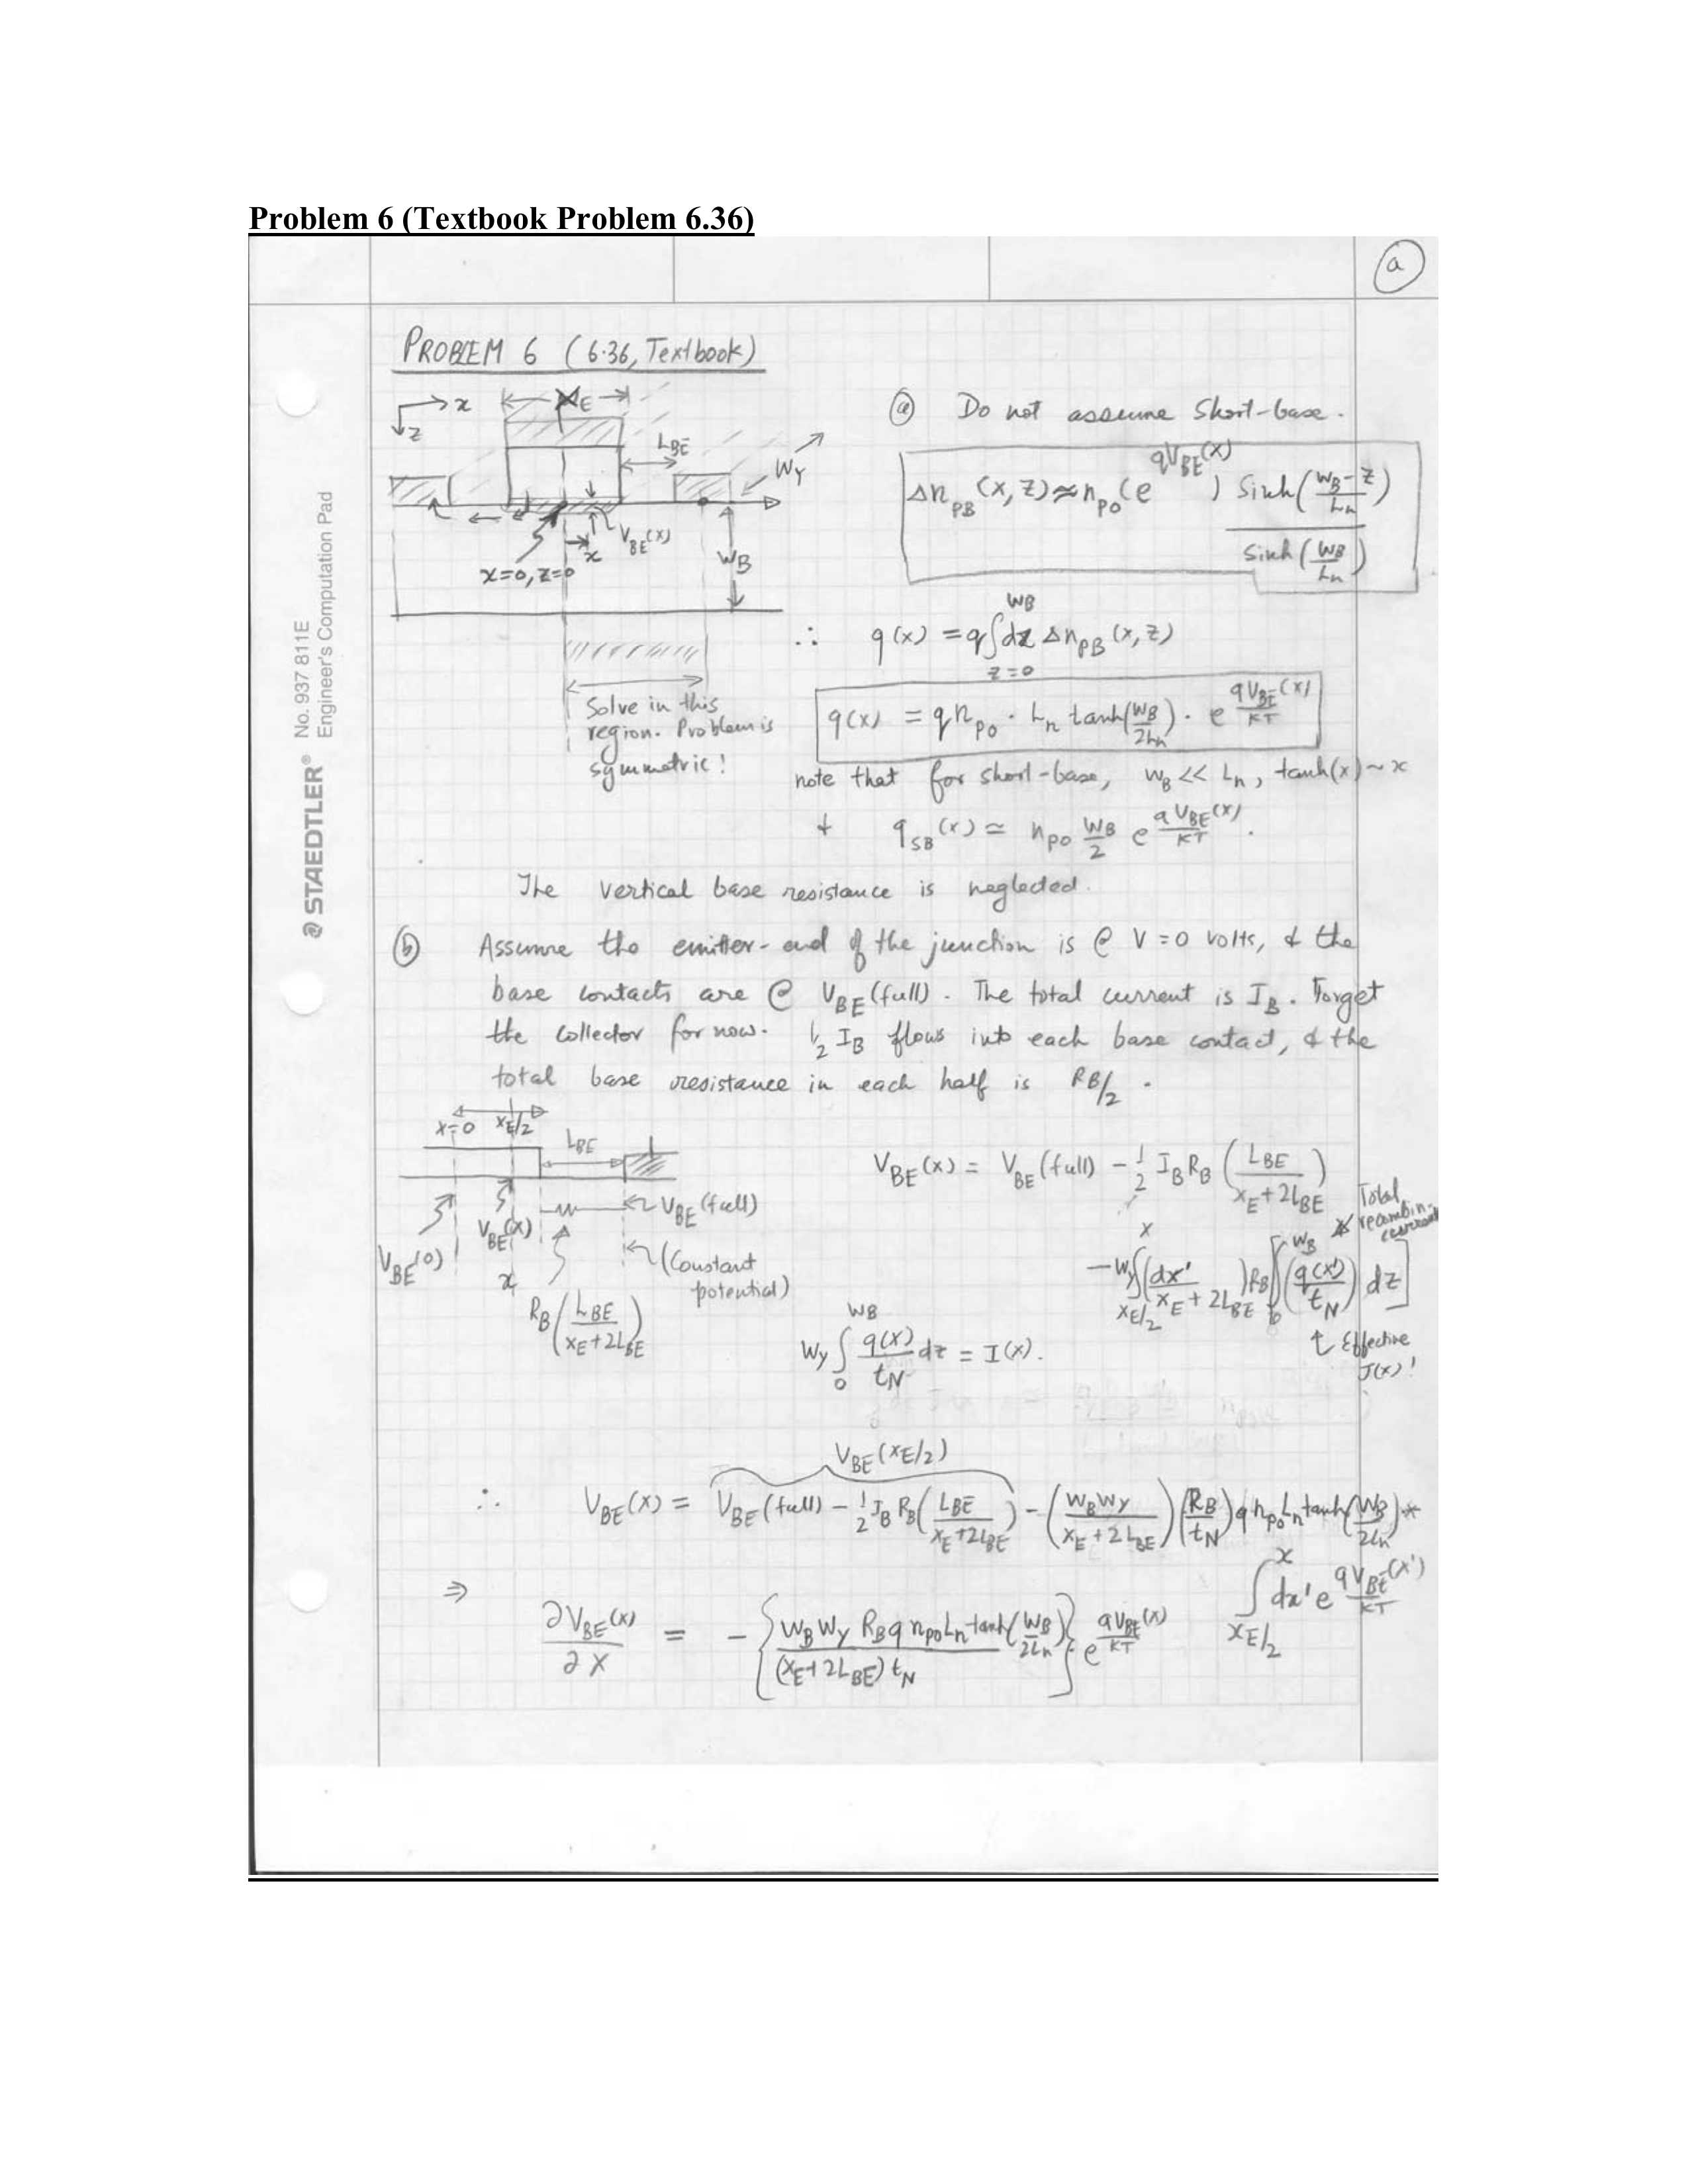 Problem 6 (Textbook Problem 6.36)
a
PROBLEM 6 (6.36, Textbook)
x
z
XE
LBE
WY
VBE(x)
x
WB
x=0, z=0
Solve in this
region. Problem is
symmetric!
No. 937 811E
Engineer's Computation Pad
STAEDTLER®
(a) Do not assume Short-base.
Δn_PB(x,z) ≈ n_po(e^{qV_BE(x)}) Sinh((W_B-z)/L_n) / Sinh(W_B/L_n)
∴ q(x) = q∫_{z=0}^{W_B} dz Δn_PB(x,z)
q(x) = q n_po · L_n tanh(W_B/2L_n) · e^{qV_BE(x)/KT}
note that for short-base, W_B << L_n, tanh(x) ~ x
+ q_SB(x) ≃ n_po W_B/2 e^{qV_BE(x)/KT}.
The vertical base resistance is neglected.
(b) Assume the emitter-end of the junction is @ V=0 volts, & the
base contacts are @ V_BE(full). The total current is I_B. Forget
the collector for now. 1/2 I_B flows into each base contact, & the
total base resistance in each half is R_B/2.
x=0
x_E/2
L_BE
V_BE(full)
V_BE(x)
V_BE(0)
x
(Constant
potential)
R_B(L_BE/(x_E+2L_BE))
V_BE(x) = V_BE(full) - 1/2 I_B R_B (L_BE/(x_E+2L_BE))
- W_Y ∫_{x_E/2}^{x} (dx'/(x_E+2L_BE)) R_B [∫_0^{W_B} (q(x')/t_N) dz]
Total
recombin.
current
↑ Effective
J(x)!
W_Y ∫_0^{W_B} q(x)/t_N dz = I(x).
V_BE(x_E/2)
∴ V_BE(x) = V_BE(full) - 1/2 I_B R_B (L_BE/(x_E+2L_BE)) - (W_B W_Y/(x_E+2L_BE)) (R_B/t_N) q n_po L_n tanh(W_B/2L_n) *
∫_{x_E/2}^{x} dx' e^{qV_BE(x')/KT}
⇒ ∂V_BE(x)/∂x = - {W_B W_Y R_B q n_po L_n tanh(W_B/2L_n) / (x_E+2L_BE) t_N} e^{qV_BE(x)/KT}